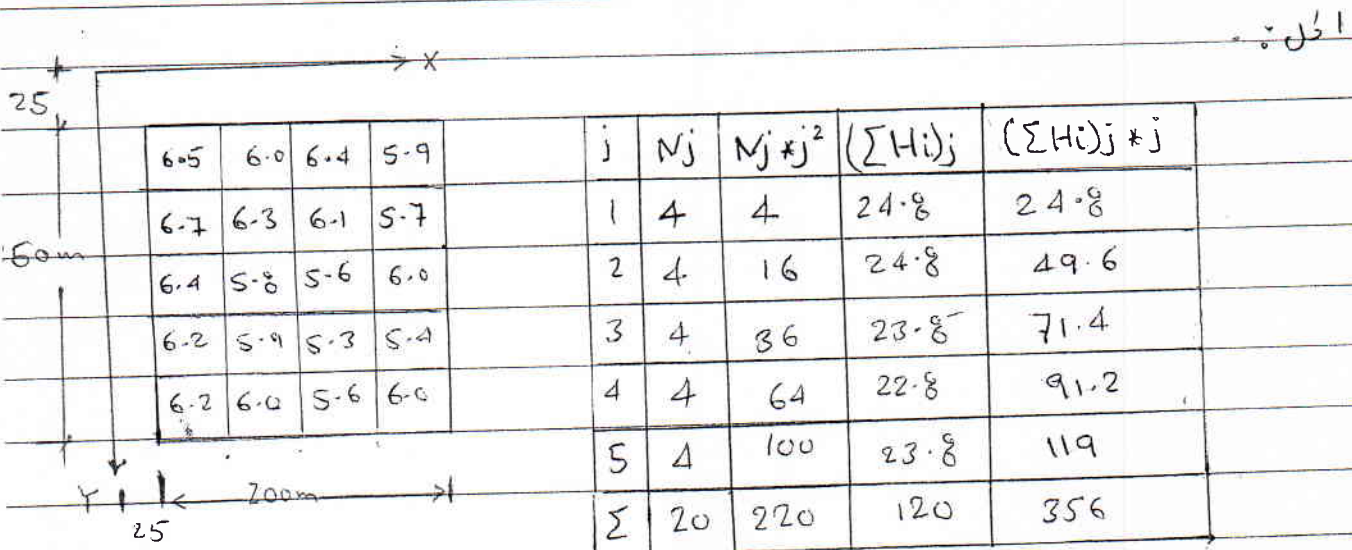 الحل :-
X
25
50m
6.5 6.0 6.4 5.9
6.7 6.3 6.1 5.7
6.4 5.8 5.6 6.0
6.2 5.9 5.3 5.4
6.2 6.0 5.6 6.0
Y
200m
25
j Nj Nj*j² (ΣHi)j (ΣHi)j*j
1 4 4 24.8 24.8
2 4 16 24.8 49.6
3 4 36 23.8 71.4
4 4 64 22.8 91.2
5 4 100 23.8 119
Σ 20 220 120 356